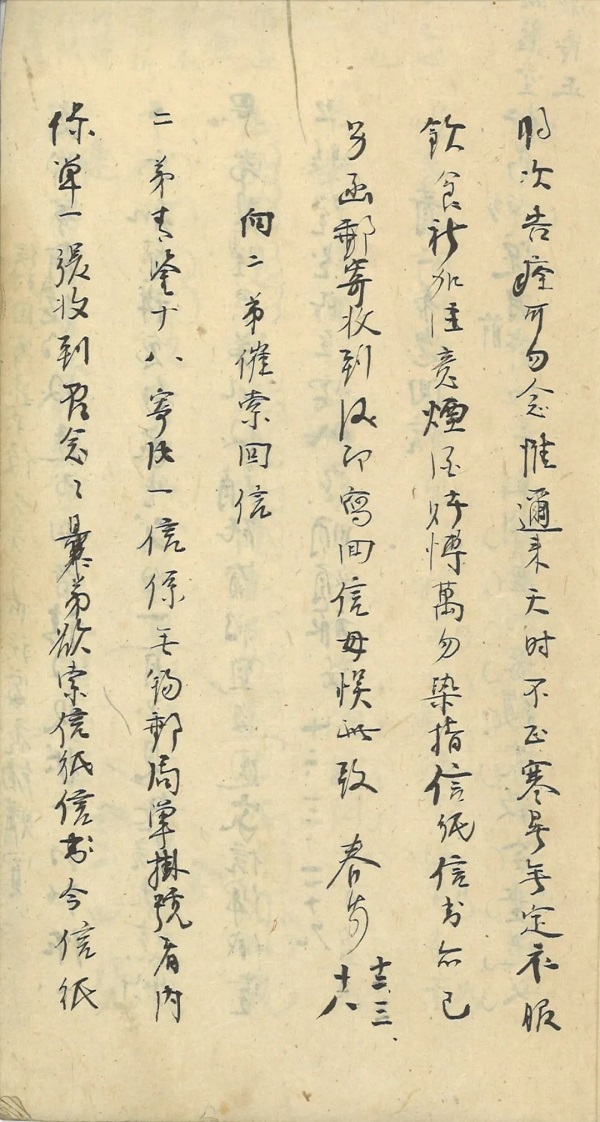 次告痊可勿念惟邇来天时不正寒暑無定衣服
飲食祈加注意煙酒賭博萬勿染指信紙信書亦已
另函郵寄收到後即寫回信毋悞此致 春弟 十三.三.十八
向二弟催索回信
二弟青鉴十八寄法一信係無錫郵局單掛號者内
保單一張收到否念〻曩弟欲索信紙信书今信紙